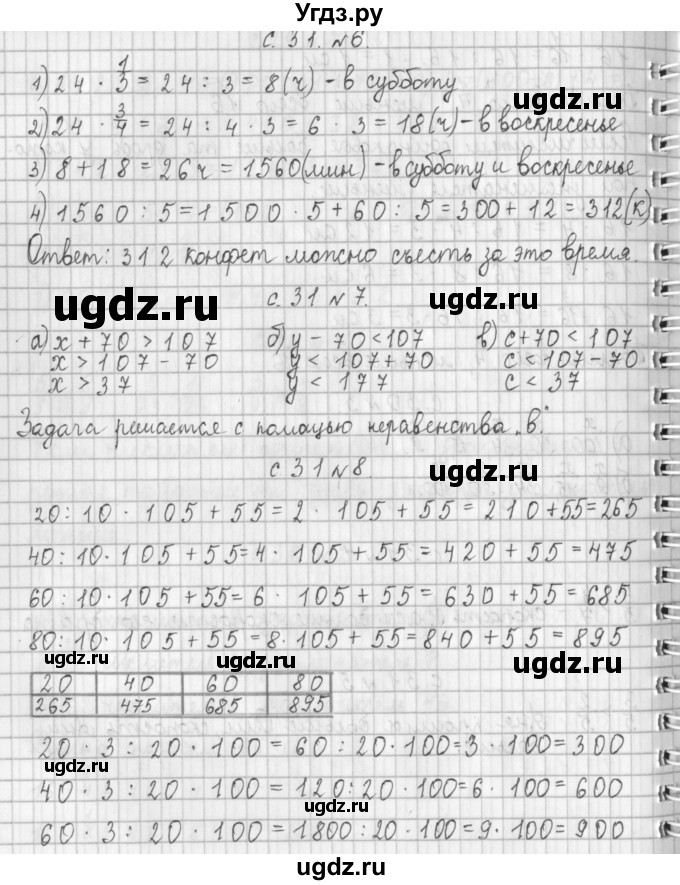 Угдз.ру
с. 31. №6.
1) 24 · 1/3 = 24 : 3 = 8(ч) - в субботу
ugdz.ru
2) 24 · 3/4 = 24 : 4 · 3 = 6 · 3 = 18(ч) - в воскресенье
3) 8 + 18 = 26ч = 1560(мин) - в субботу и воскресенье
4) 1560 : 5 = 1500 · 5 + 60 : 5 = 300 + 12 = 312(к)
Ответ: 312 конфет можно съесть за это время.
ugdz.ru
с. 31 №7.
ugdz.ru
а) x + 70 > 107 б) y - 70 < 107 в) c + 70 < 107
x > 107 - 70 y < 107 + 70 c < 107 - 70
x > 37 y < 177 c < 37
Задача решается с помощью неравенства „в“
с 31 №8.
ugdz.ru
20 : 10 · 105 + 55 = 2 · 105 + 55 = 210 + 55 = 265
40 : 10 · 105 + 55 = 4 · 105 + 55 = 420 + 55 = 475
60 : 10 · 105 + 55 = 6 · 105 + 55 = 630 + 55 = 685
80 : 10 · 105 + 55 = 8 · 105 + 55 = 840 + 55 = 895
ugdz.ru
ugdz.ru
20 40 60 80
265 475 685 895
20 · 3 : 20 · 100 = 60 : 20 · 100 = 3 · 100 = 300
ugdz.ru
40 · 3 : 20 · 100 = 120 : 20 · 100 = 6 · 100 = 600
ugdz.ru
60 · 3 : 20 · 100 = 1800 : 20 · 100 = 9 · 100 = 900
ugdz.ru